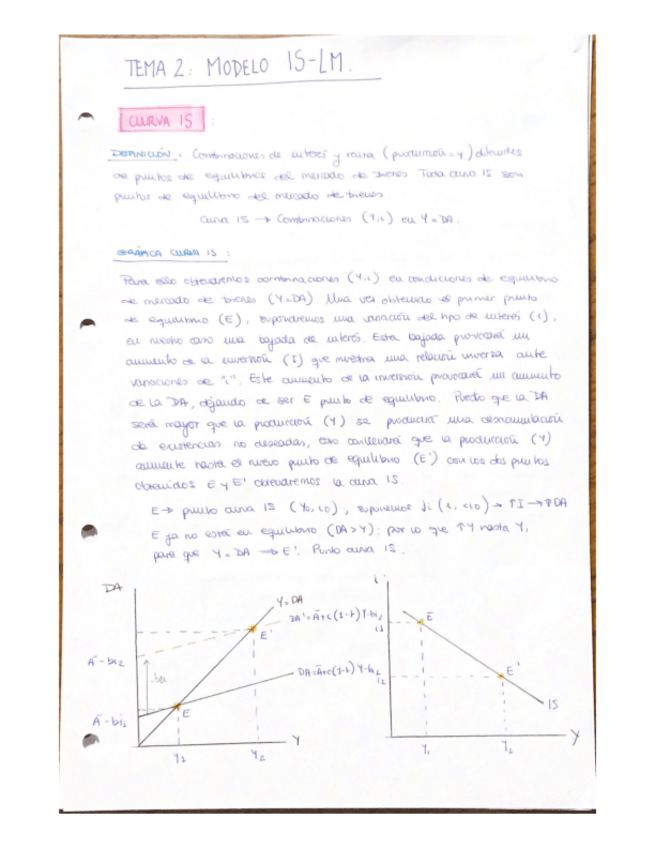 TEMA 2: MODELO IS-LM.
CURVA IS :
DEFINICIÓN: Combinaciones de interés y renta (producción = Y) obtenidas
de puntos de equilibrios del mercado de bienes. Toda curva IS son
puntos de equilibrio del mercado de bienes.
Curva IS → Combinaciones (Y,i) en Y = DA.
GRÁFICA CURVA IS :
Para ello obtendremos combinaciones (Y,i) en condiciones de equilibrio
de mercado de bienes (Y=DA). Una vez obtenido el primer punto
de equilibrio (E), supondremos una variación del tipo de interés (i),
en nuestro caso una bajada de interés. Esta bajada provocará un
aumento de la inversión (I) que muestra una relación inversa ante
variaciones de "i". Este aumento de la inversión provocará un aumento
de la DA, dejando de ser E punto de equilibrio. Puesto que la DA
será mayor que la producción (Y) se producirá una desacumulación
de existencias no deseadas, esto conllevará que la producción (Y)
aumente hasta el nuevo punto de equilibrio (E') con los dos puntos
obtenidos E y E' obtendremos la curva IS.
E → punto curva IS (Y₀, i₀), suponemos ↓i (i, <i₀) → ↑I → ↑DA
E ya no está en equilibrio (DA>Y); por lo que ↑Y hasta Y,
para que Y = DA → E'. Punto curva IS.
DA
Y=DA
DA'=Ā+c(1-t)Y-bi₂
E'
Ā-bi₂
DA=Ā+c(1-t)Y-bi₁
E
Ā-bi₁
Y₁
Y₂
Y
i
i₁
E
i₂
E'
IS
Y₁
Y₂
Y